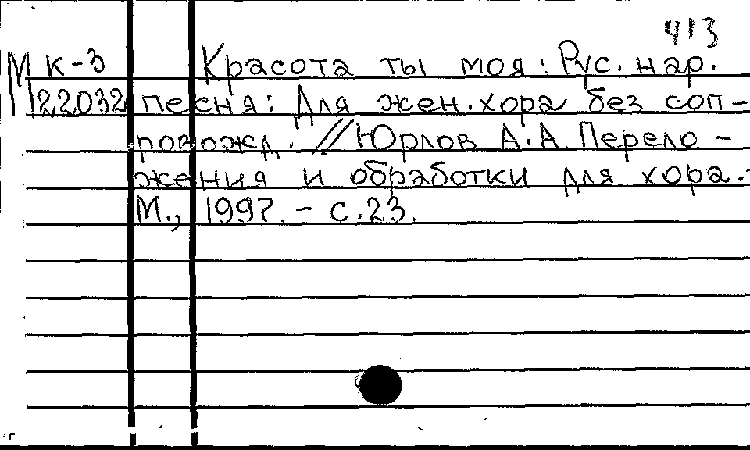 413
М к-3 Красота ты моя: Рус. нар.
22032 песня: Для жен. хора без соп-
ровожд. // Юрлов А.А Перело-
жения и обработки для хора.-
М., 1997. - с.23.